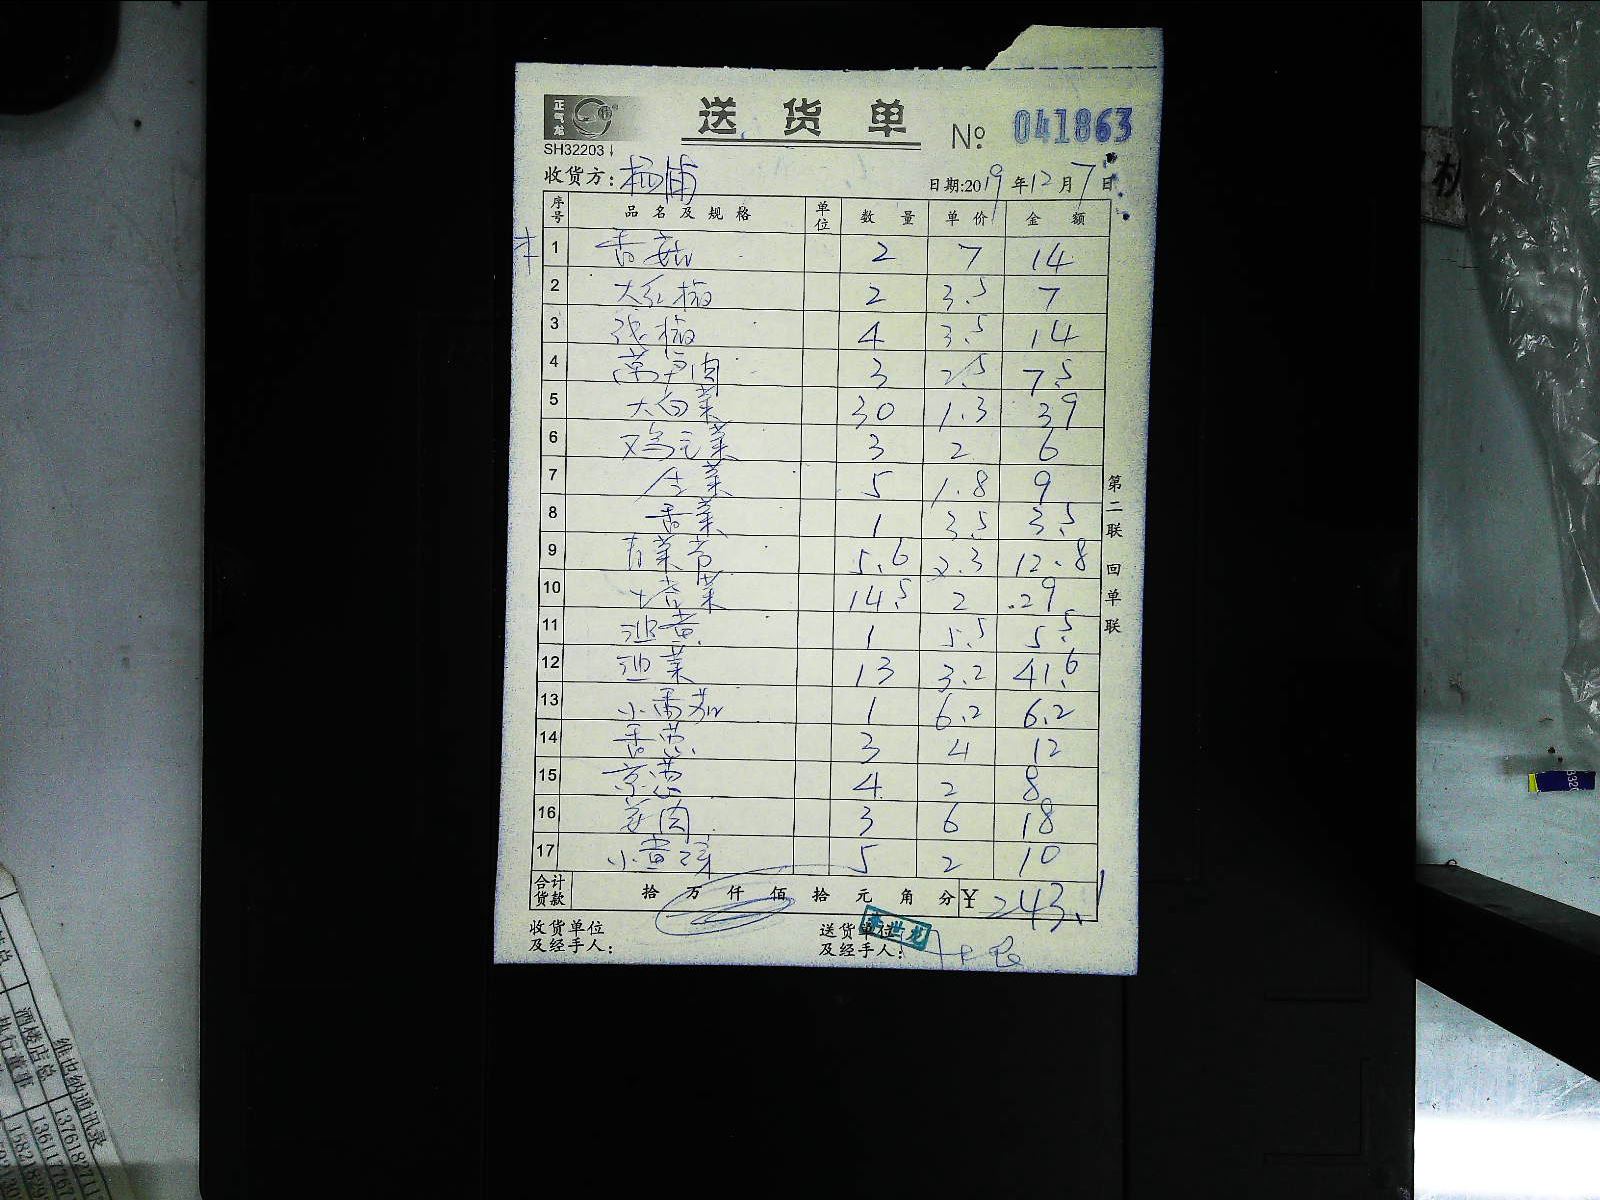 正气龙
送货单
SH32203
№ 041863
收货方: 杨浦
日期:2019年12月7日
序号 品名及规格 单位 数量 单价 金额
1 香菇 2 7 14
2 大红椒 2 3.5 7
3 尖椒 4 3.5 14
4 莴笋肉 3 2.5 7.5
5 大白菜 30 1.3 39
6 鸡毛菜 3 2 6
7 生菜 5 1.8 9
8 香菜 1 3.5 3.5
9 青菜 5.6 2.3 12.8
10 菜 14.5 2 .29
11 韭黄 1 5.5 5.5
12 韭菜 13 3.2 41.6
13 小番茄 1 6.2 6.2
14 香葱 3 4 12
15 京葱 4 2 8
16 姜肉 3 6 18
17 小黄 5 2 10
合计货款 拾 万 仟 佰 拾 元 角 分 ¥ 243.1
第二联 回单联
收货单位及经手人:
送货单位及经手人:
世龙
维也纳通讯录
酒楼店总
执行董事